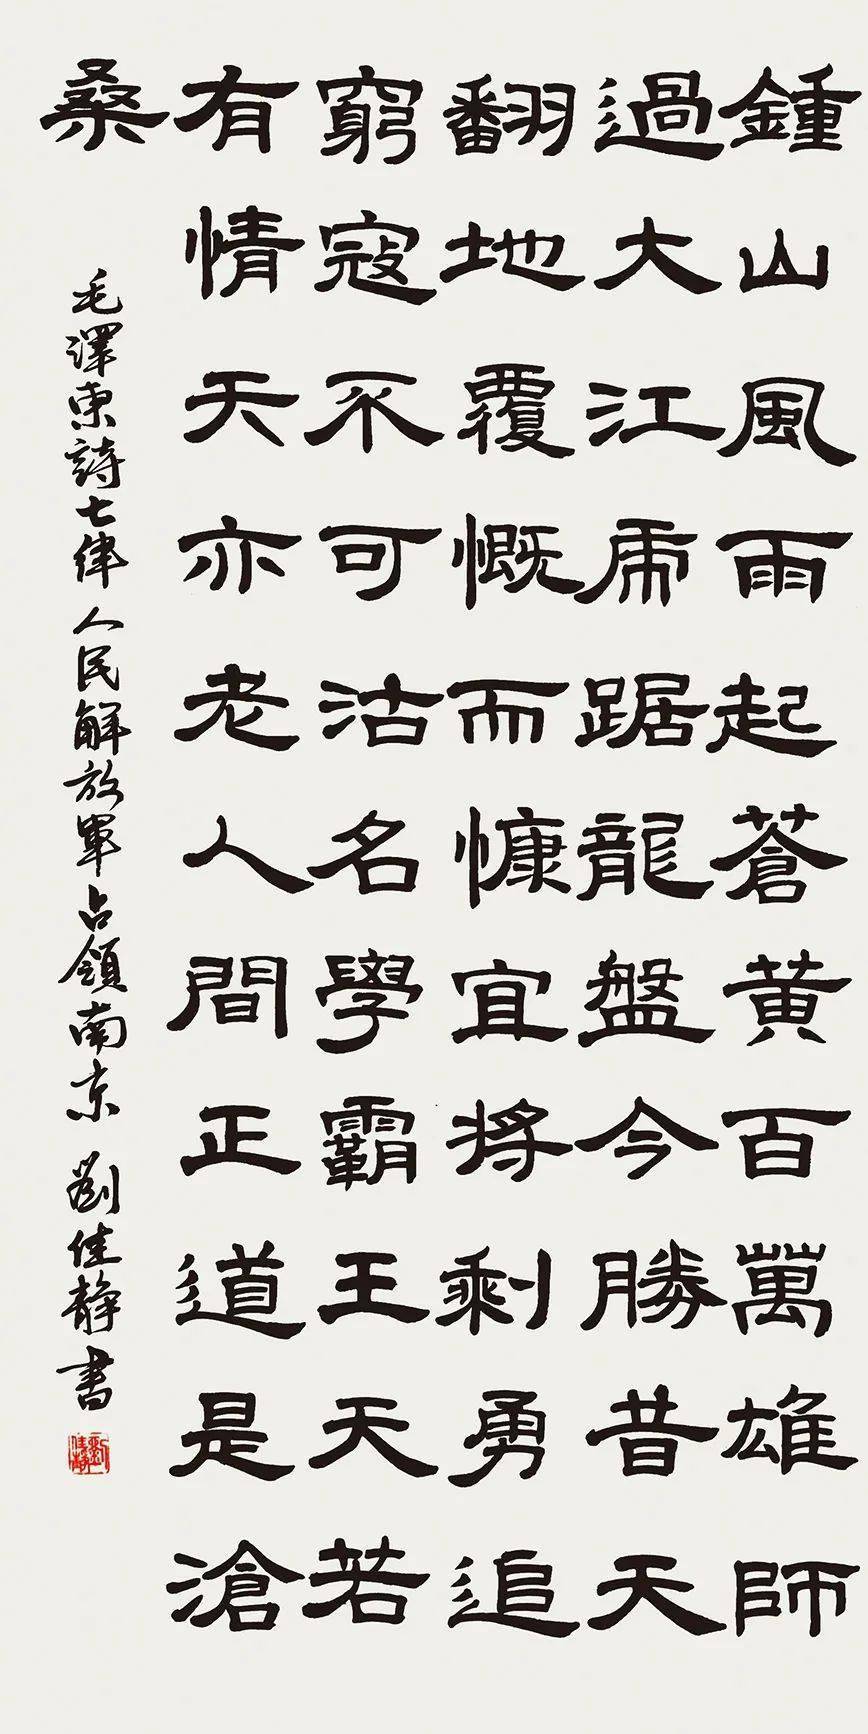 鍾山風雨起蒼黄百萬雄師
過大江虎踞龍盤今勝昔天
翻地覆慨而慷宜將剩勇追
窮寇不可沽名學霸王天若
有情天亦老人間正道是滄
桑
毛澤東詩七律人民解放軍占領南京 劉佳靜書
劉佳靜